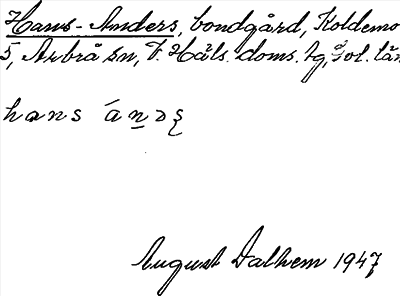 Hans-Anders, bondgård, Koldemo
5, Arbrå sn, V. Häls. doms. tg, Gvl. län
hans ándʂ
August Dalhem 1947